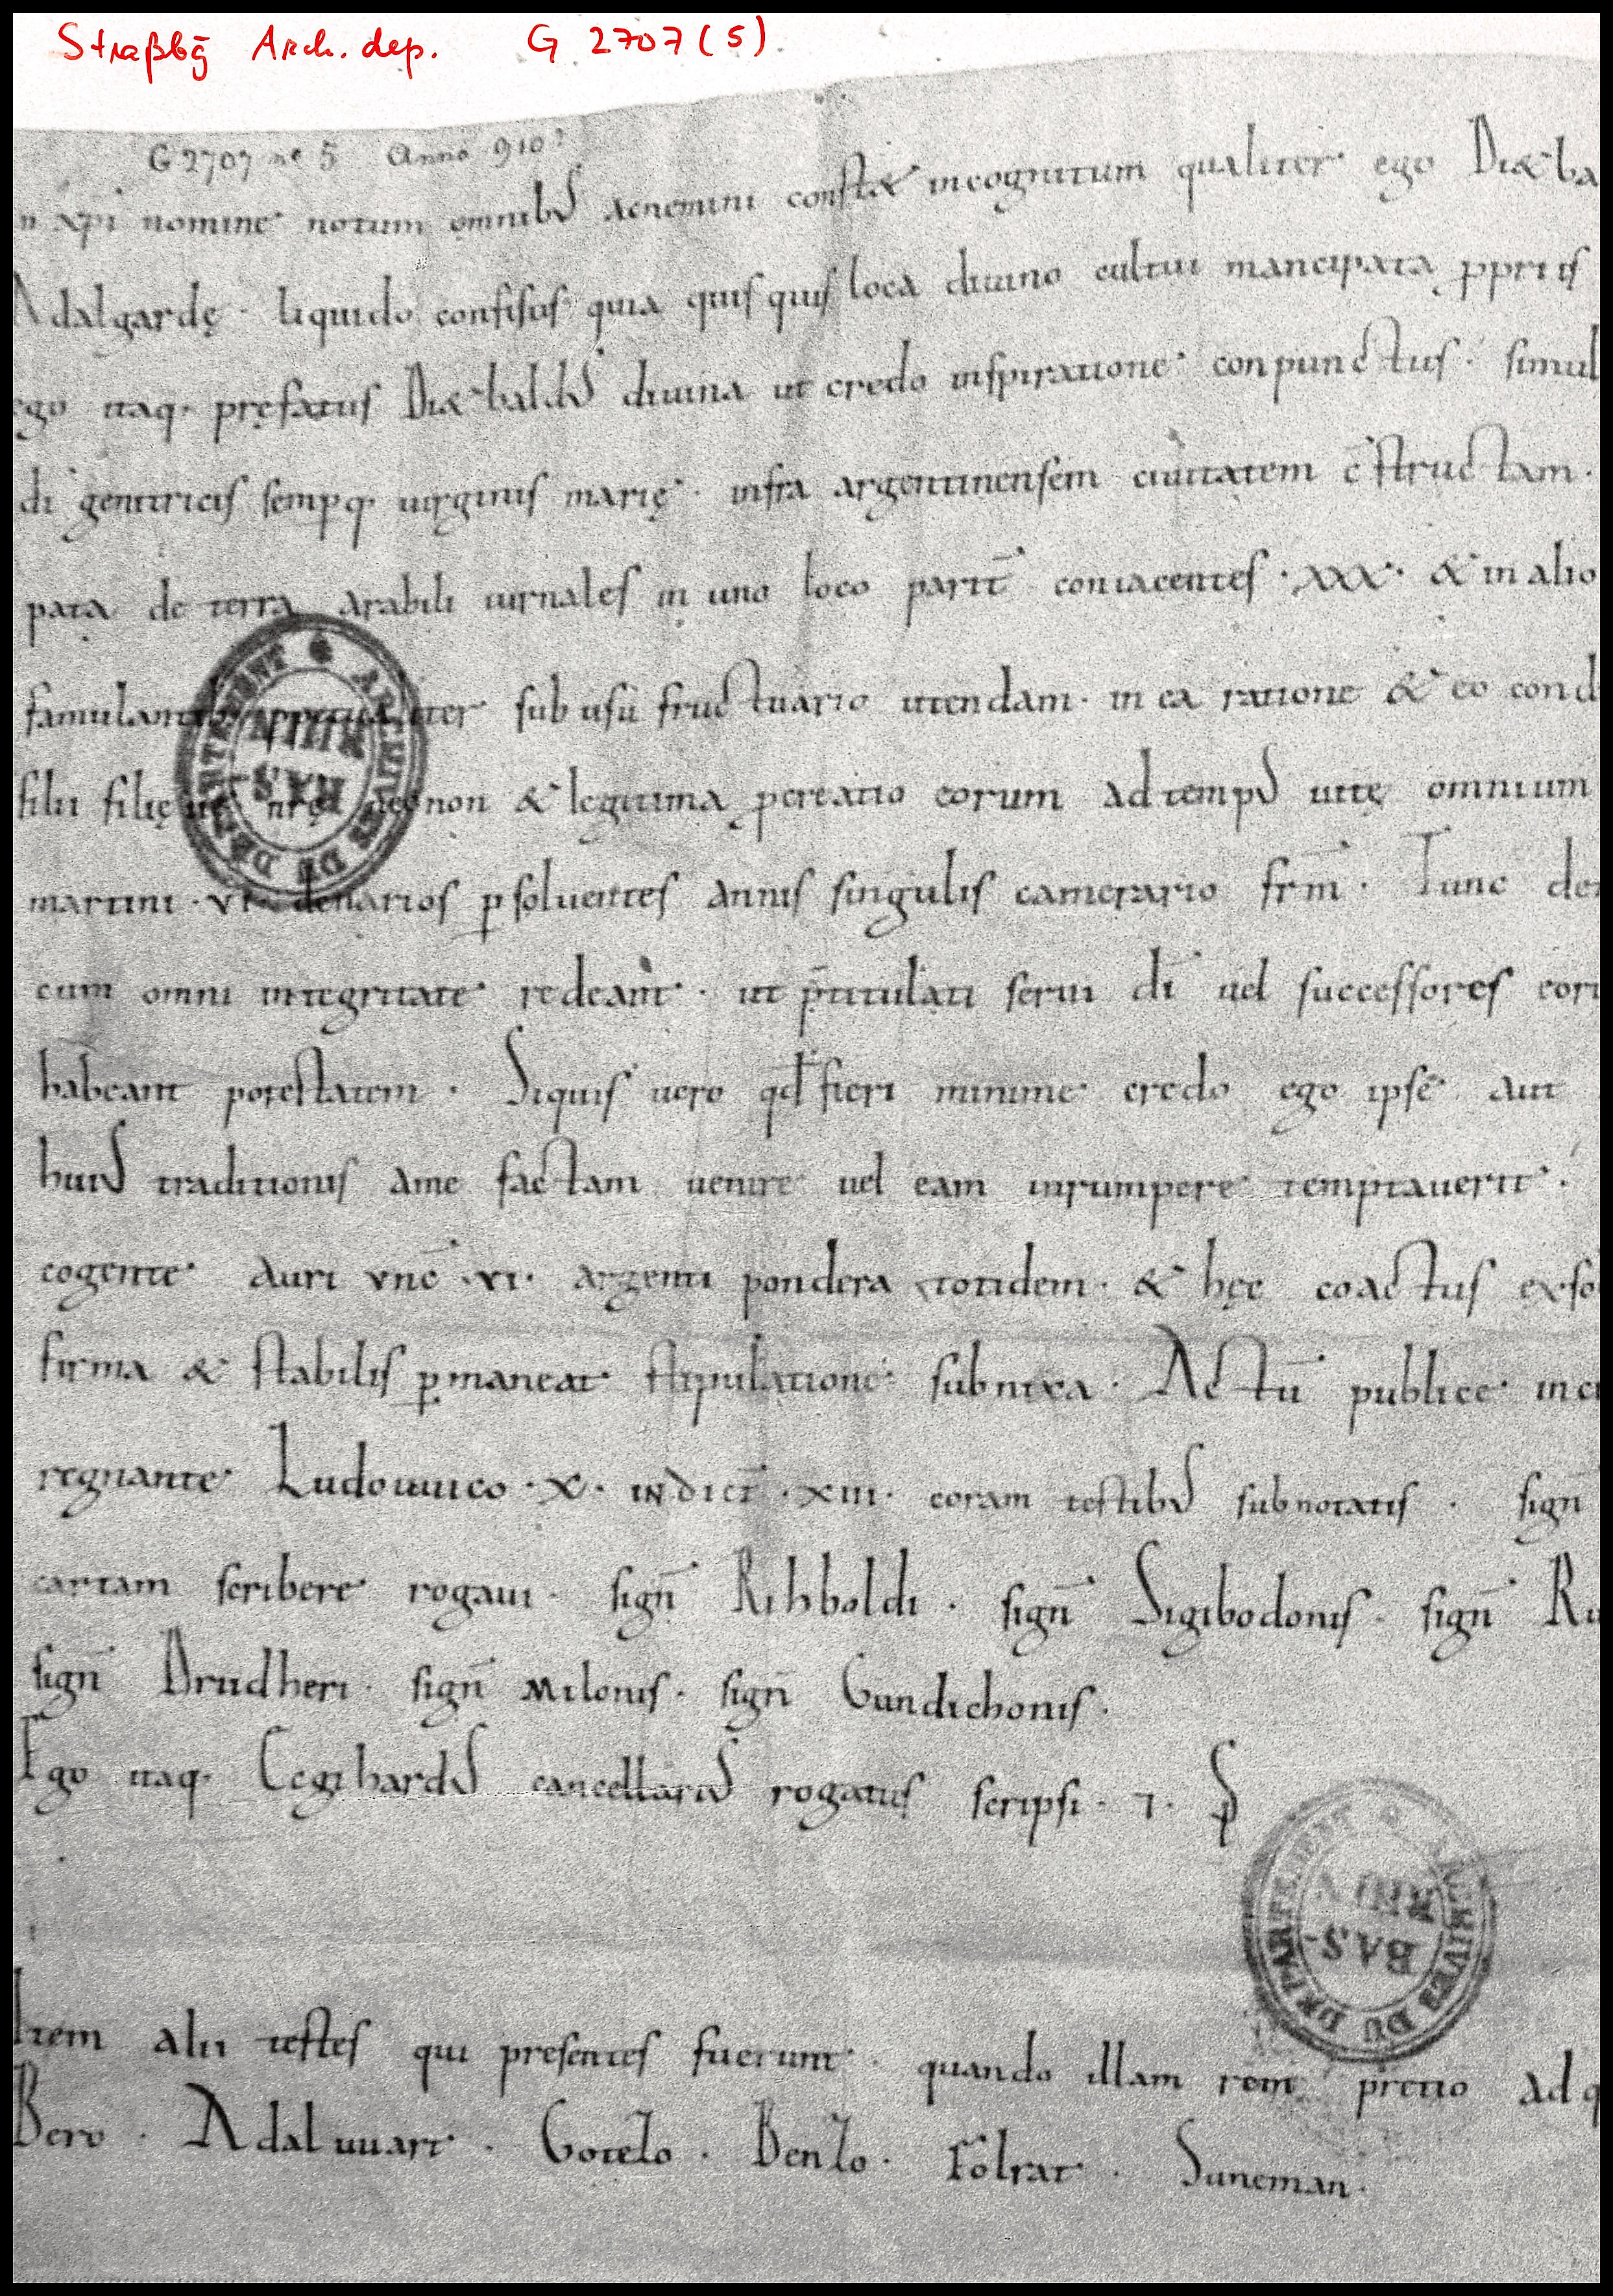 Straßbg Arch. dep. G 2707 (5)
G 2707 no 5 Anno 910?
n xp̄i nomine notum omnibus acnemini constæ incognitum qualiter ego Diæba
Adalgardę · liquido confisus quia quisquis loca diuino cultui mancipata ppriis
ego itaq· pręfatus Diæbaldus diuina ut credo inspiratione conpunctus · simul
dī genitricis sempq· uirginis marię · infra argentinensem ciuitatem c̄structam ·
pata de terra arabili iurnales in uno loco parit̄ coniacentes · xxx · & in alio
sub usu fructuario utendam · in ea ratione & eo cond
filii filię non & legitima pcreatio eorum ad tempus uitę omnium
martini · vi denarios psoluentes annis singulis camerario frm̄ · Tunc de
cum omni integritate redeant · ut p̄titulati serui dī uel successores eoru
habeant potestatem · Siquis uero qd̄ fieri minime credo ego ipse aut
huius traditionis ame factam uenire uel eam inrumpere temptauerit ·
cogente auri vnc̄ · vi · argenti pondera totidem · & hęc coactus exso
firma & stabilis pmaneat stipulatione subnixa · Actū publice in ci
regnante Ludouuico · x · indict̄ · xiii · coram testibus subnotatis · sign̄
cartam scribere rogaui · sign̄ Rihboldi · sign̄ Sigibodonis · sign̄ Ru
sign̄ Drudheri · sign̄ Milonis · sign̄ Gundichonis ·
Ego itaq· Cegihardus cancellarius rogatus scripsi · ⁊ ·
Item alii testes qui presentes fuerunt · quando illam rem pretio adq
Bero · Adaluuart · Gotezo · Benzo · Folrat · Suneman ·
ARCHIVES DU DEPARTEMENT
BAS-RHIN
ARCHIVES DU DEPARTEMENT
BAS-RHIN